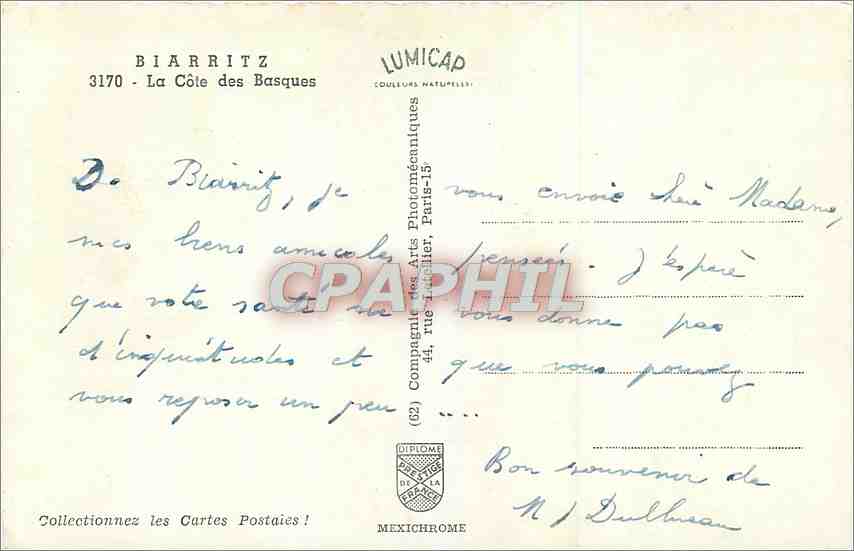 BIARRITZ
3170 - La Côte des Basques
LUMICAP
COULEURS NATURELLES
De Biarritz, je vous envoie chère Madame,
mes biens amicales pensées. J'espère
que votre santé ne vous donne pas
d'inquiétudes et que vous pouvez
vous reposer un peu ....
Bon souvenir de
M J
(62) Compagnie des Arts Photomécaniques
44, rue Letellier, Paris-15e
CPAPHIL
DIPLOME
PRESTIGE
DE LA
FRANCE
MEXICHROME
Collectionnez les Cartes Postales !